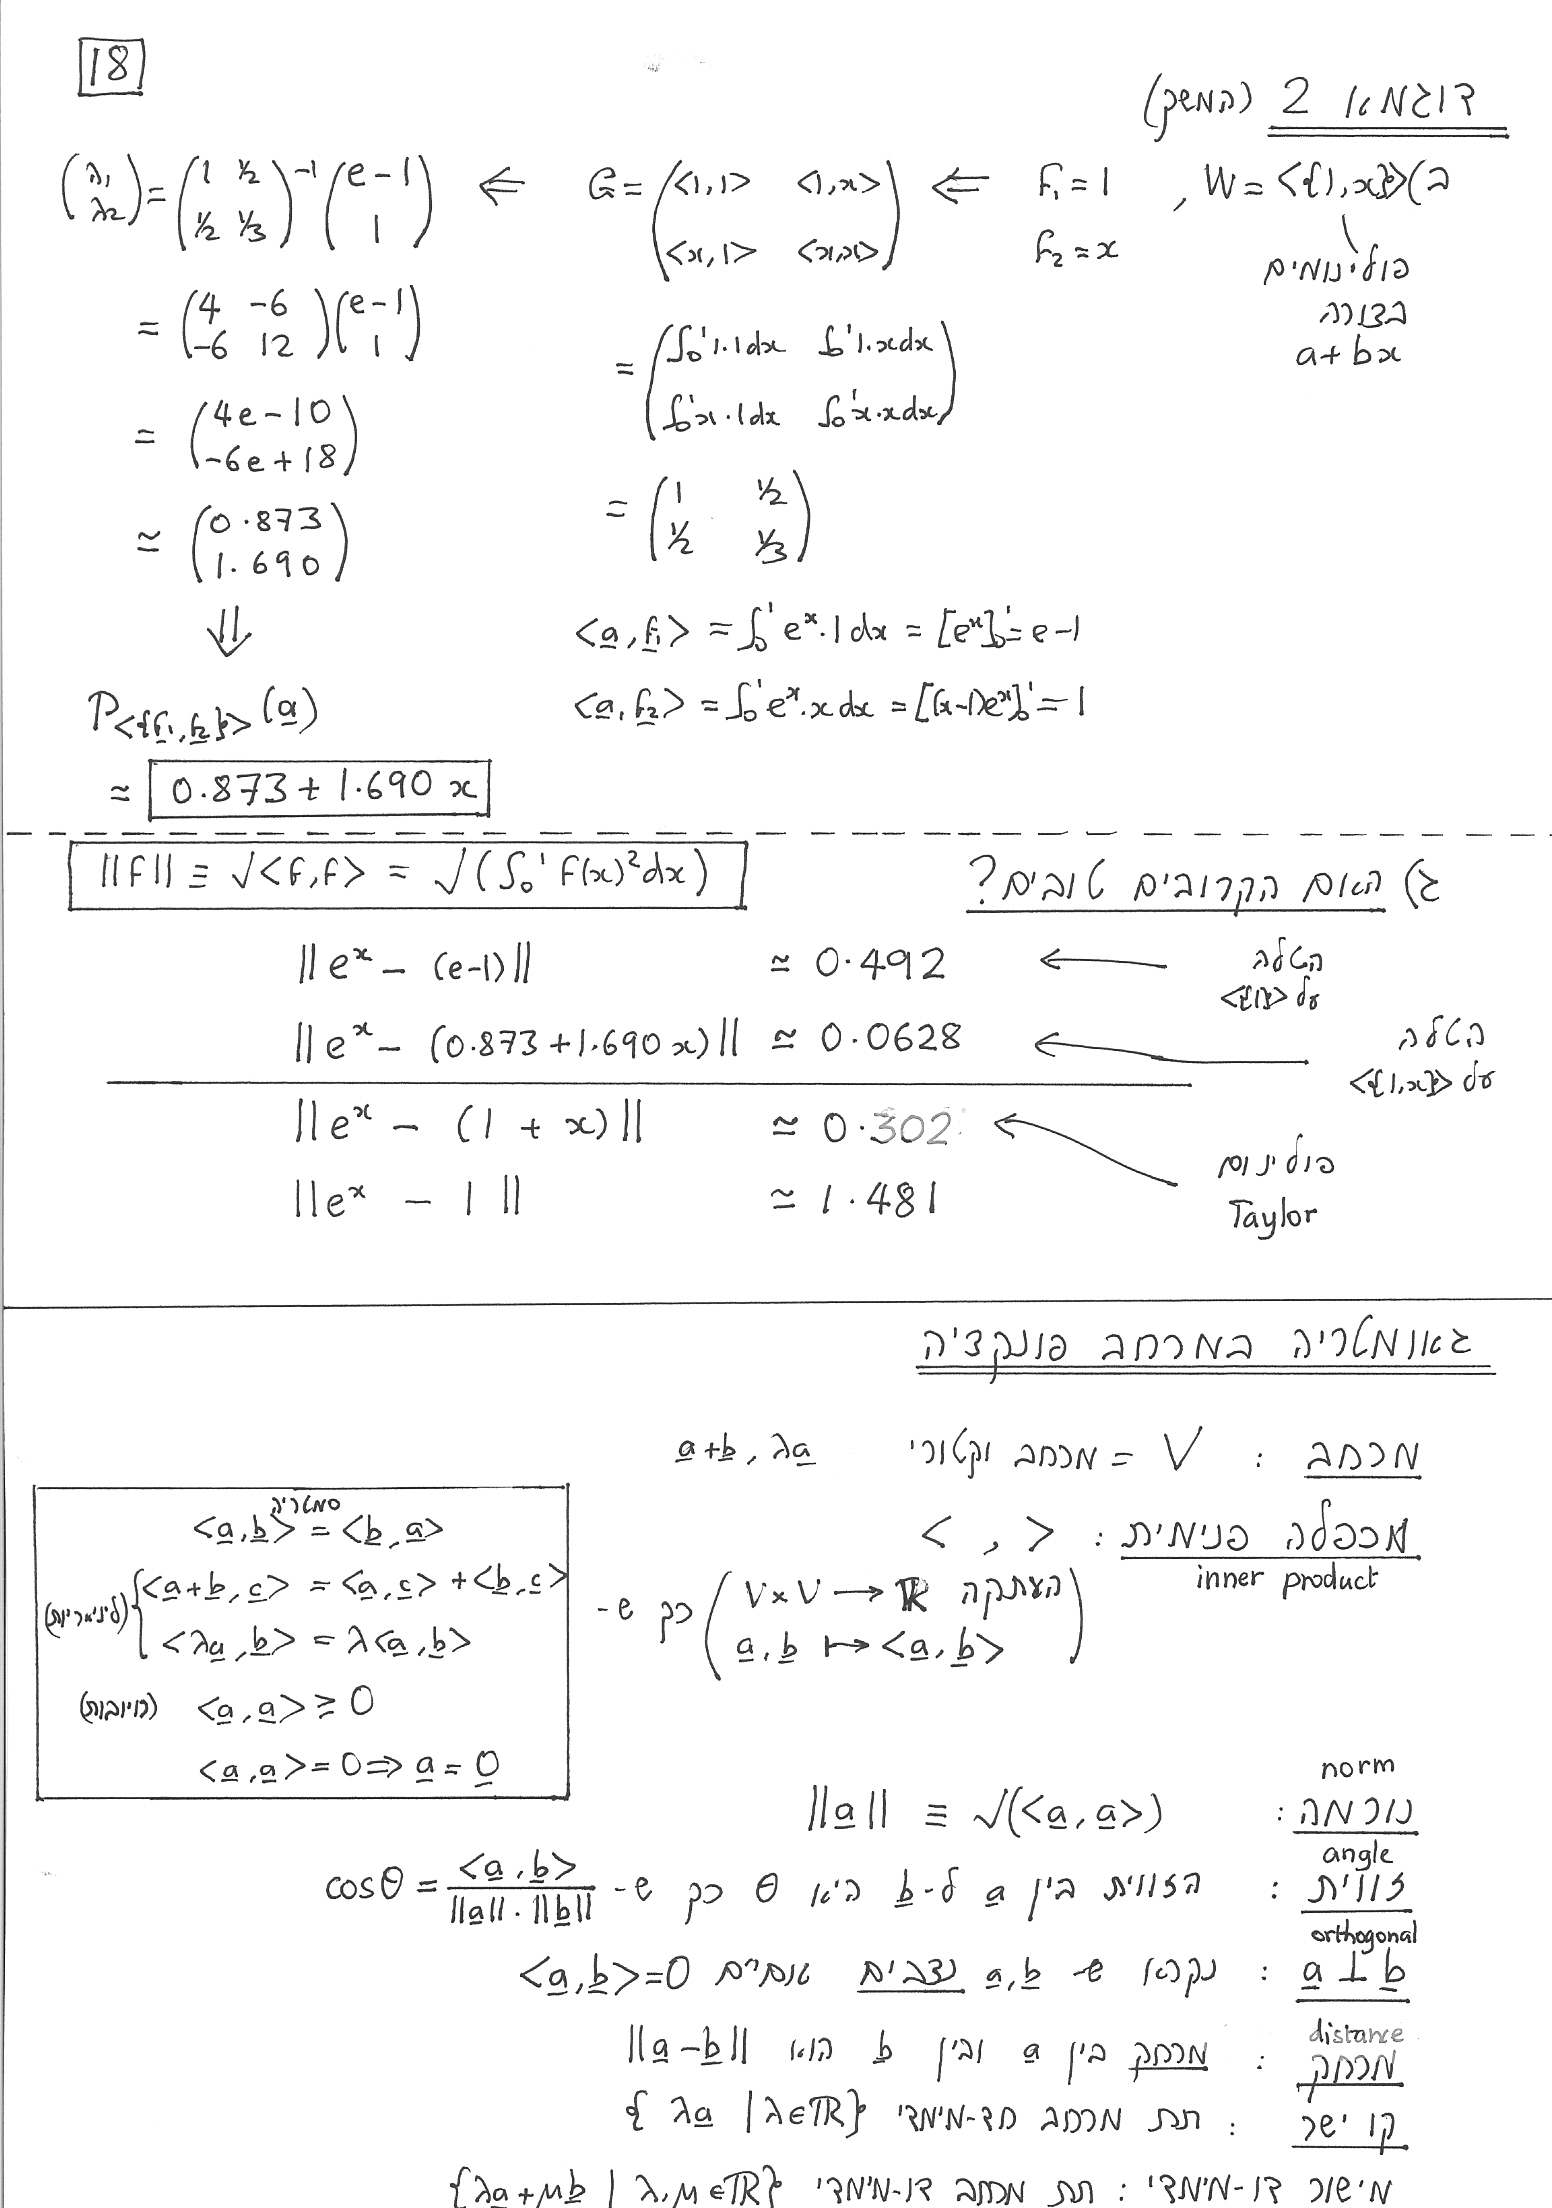 18
דוגמא 2 (המשך)
ב) W = <{1,x}> ,
פולינומים
בצורה
a+bx
f₁ = 1
f₂ = x
⇐
G = (<1,1> <1,x>
<x,1> <x,x>)
= (∫₀¹1.1dx ∫₀¹1.xdx
∫₀¹x.1dx ∫₀¹x.xdx)
= (1 ½
½ ⅓)
<a,f₁> = ∫₀¹eˣ.1dx = [eˣ]₀¹ = e-1
<a,f₂> = ∫₀¹eˣ.xdx = [(x-1)eˣ]₀¹ = 1
⇐
(λ₁ λ₂) = (1 ½ ½ ⅓)⁻¹ (e-1 1)
= (4 -6 -6 12)(e-1 1)
= (4e-10 -6e+18)
≃ (0.873 1.690)
⇓
P<{f₁,f₂}>(a)
≃ 0.873 + 1.690 x
ג) האם הקרובים טובים?
||f|| ≡ √<f,f> = √(∫₀¹ f(x)²dx)
||eˣ - (e-1)|| ≃ 0.492 ← הטלה
על <{1}>
||eˣ - (0.873+1.690x)|| ≃ 0.0628 ← הטלה
על <{1,x}>
||eˣ - (1 + x)|| ≃ 0.302 ← פולינום
Taylor
||eˣ - 1|| ≃ 1.481
גאומטריה במרחב פונקציה
מרחב : V = מרחב וקטורי a+b, λa
מכפלה פנימית : < , >
inner product
(העתקה V×V → ℝ
a,b ↦ <a,b>) כך ש-
סמטריה
<a,b> = <b,a>
(לינאריות) {<a+b,c> = <a,c> + <b,c>
<λa,b> = λ<a,b>
(חיובות) <a,a> ≥ 0
<a,a> = 0 ⇒ a = 0
norm
נורמה : ||a|| ≡ √(<a,a>)
angle
זווית : הזווית בין a ל-b היא θ כך ש- cosθ = <a,b> / ||a||.||b||
orthogonal
a ⊥ b : נקרא ש- a,b נצבים אם״ם <a,b>=0
distance
מרחק : מרחק בין a ובין b הוא ||a-b||
קו ישר : תת מרחב חד-מימדי {λa | λ∈ℝ}
מישור דו-מימדי : תת מרחב דו-מימדי {λa+μb | λ,μ∈ℝ}